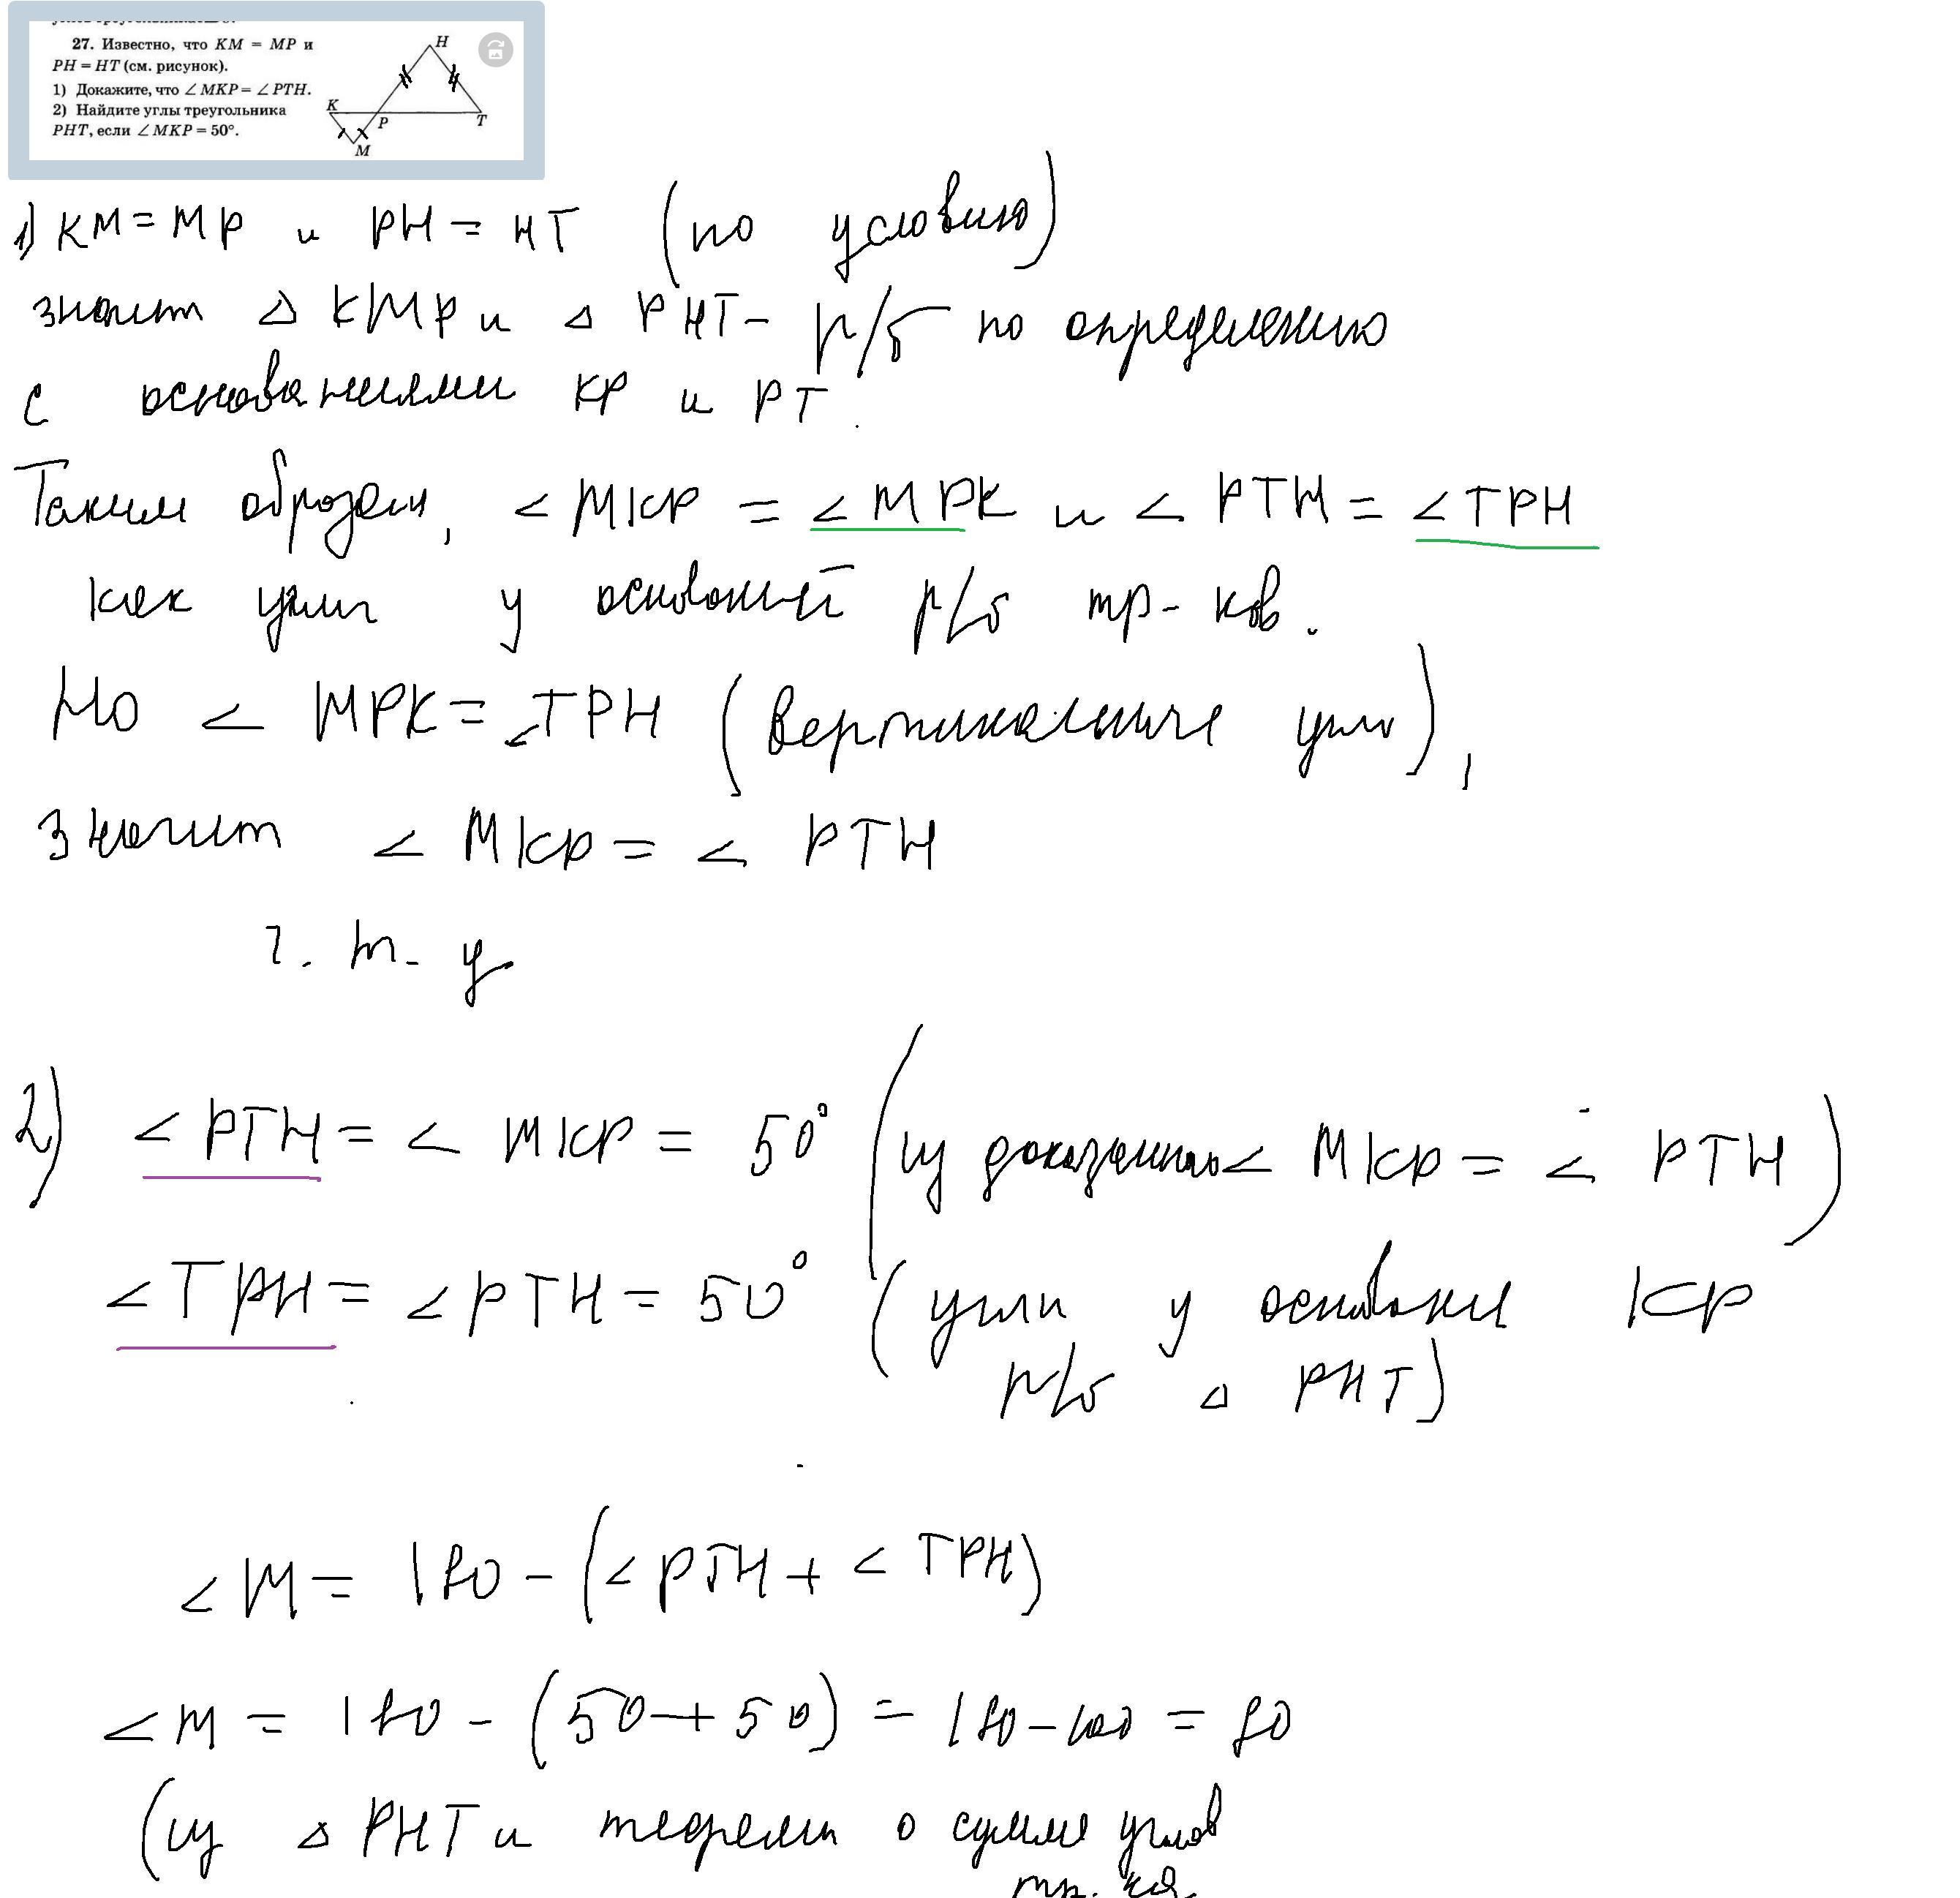 27. Известно, что KM = MP и
PH = HT (см. рисунок).
1) Докажите, что ∠MKP = ∠PTH.
2) Найдите углы треугольника
PHT, если ∠MKP = 50°.
H
K
P
T
M
1) KM = MP и PH = HT (по условию)
значит △ KMP и △ PHT - р/б по определению
с основаниями KP и PT.
Таким образом, ∠ MKP = ∠ MPK и ∠ PTH = ∠ TPH
как углы у оснований р/б тр-ков.
Но ∠ MPK = ∠ TPH (вертикальные углы),
значит ∠ MKP = ∠ PTH
ч. т. д
2) ∠ PTH = ∠ MKP = 50° (из доказанного ∠ MKP = ∠ PTH)
∠ TPH = ∠ PTH = 50° (углы у основании KP
р/б △ PHT)
∠ M = 180 - (∠ PTH + ∠ TPH)
∠ M = 180 - (50 + 50) = 180 - 100 = 80
(из △ PHT и теоремы о сумме углов
тр-ка